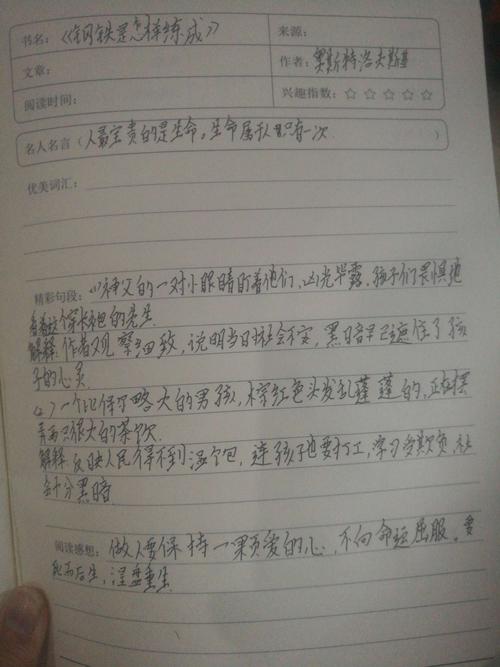 书名：《钢铁是怎样练成》
来源：
文章：
作者：奥斯特洛夫斯基
阅读时间：
兴趣指数：☆ ☆ ☆ ☆ ☆
名人名言（人最宝贵的是生命。生命属于人只有一次 ）
优美词汇：
精彩句段：(1)神父的一对小眼睛盯着他们，凶光毕露，孩子们畏惧地
看着这个穿长袍的先生.
解释：作者观察细致，说明当日社会不安，黑暗早已遮住了孩
子的心灵.
(2)一个比保尔略大的男孩，棕红色头发乱蓬蓬的，正在摆
弄两只很大的茶炊.
解释：反映人民得不到温饱，连孩子也要打工，学习多欺负，社
会十分黑暗.
阅读感想：做人要保持一颗爱的心，不向命运屈服。要
死而后生，涅盘重生.